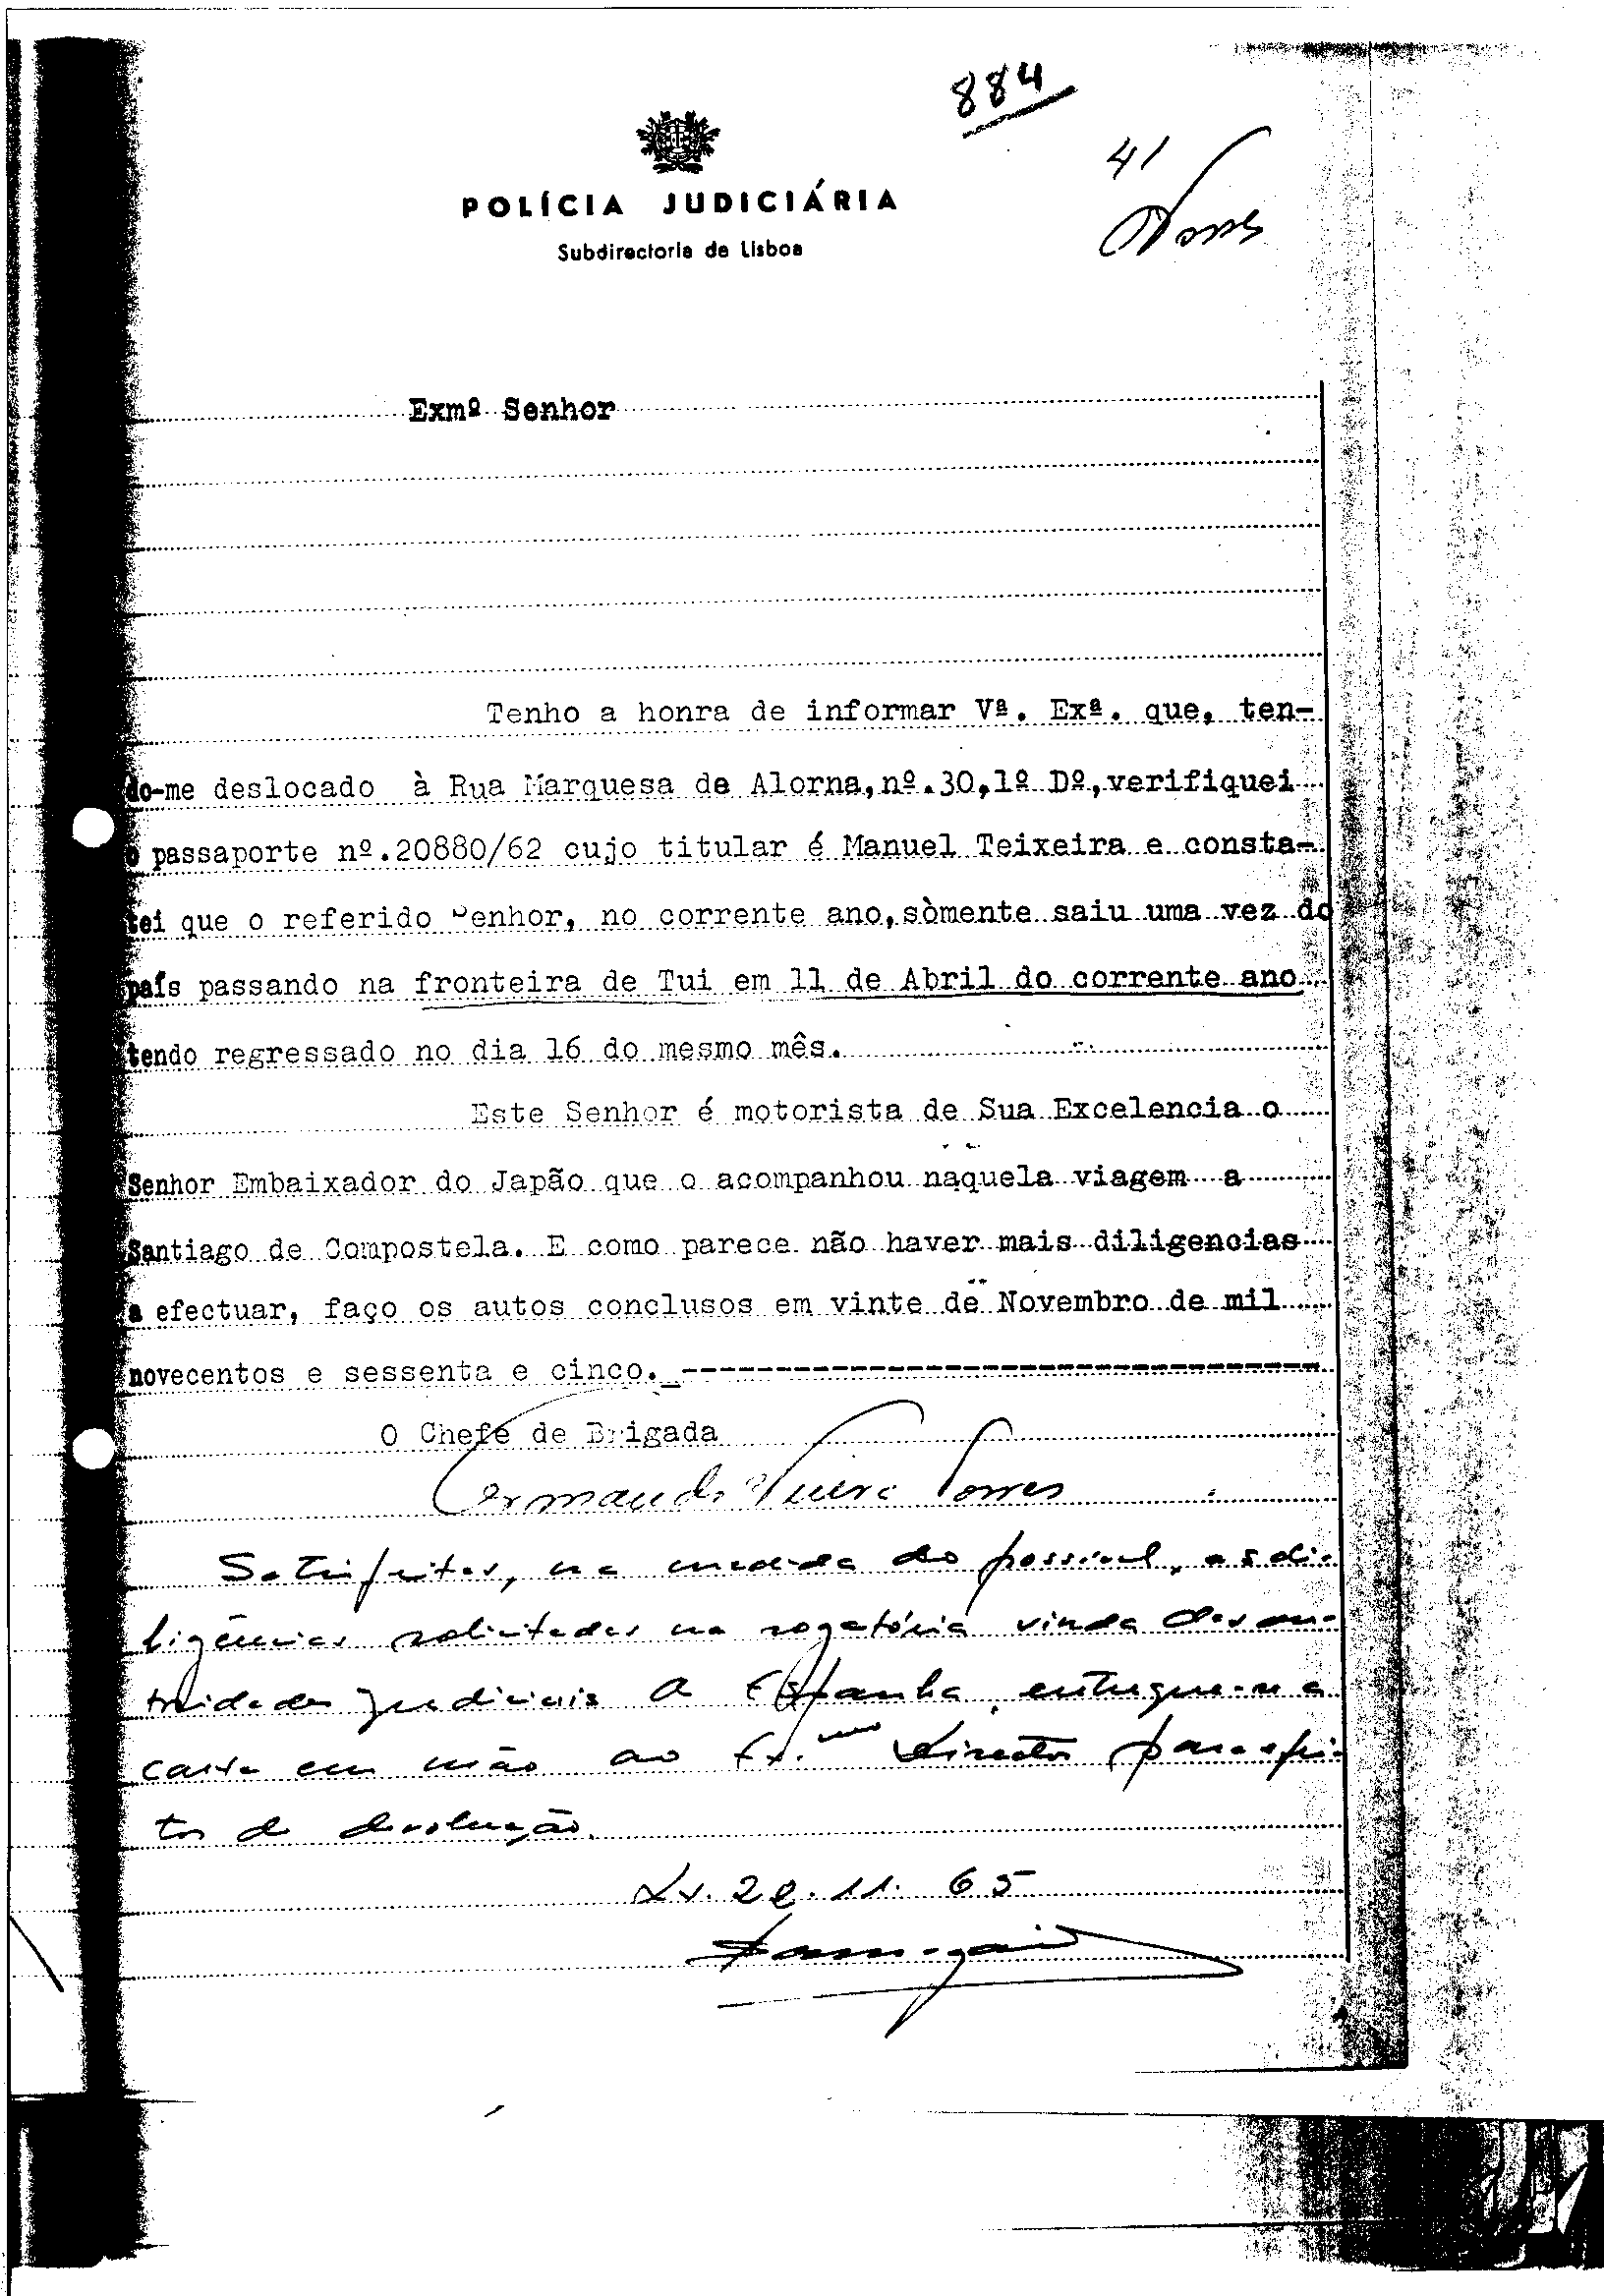 884
41
Torres
POLÍCIA JUDICIÁRIA
Subdirectoria de Lisboa
Exmº Senhor
Tenho a honra de informar Vª. Exª. que, ten-
do-me deslocado à Rua Marquesa de Alorna, nº.30,1º Dº, verifiquei
o passaporte nº.20880/62 cujo titular é Manuel Teixeira e consta-
tei que o referido Senhor, no corrente ano, sòmente saiu uma vez do
país passando na fronteira de Tui em 11 de Abril do corrente ano
tendo regressado no dia 16 do mesmo mês.
Este Senhor é motorista de Sua Excelencia o
Senhor Embaixador do Japão que o acompanhou naquela viagem a
Santiago de Compostela. E como parece não haver mais diligencias
a efectuar, faço os autos conclusos em vinte de Novembro de mil
novecentos e sessenta e cinco.
O Chefe de Brigada
Armando Torres
Satisfeitas, na medida do possível, as di-
ligências solicitadas na rogatória vinda das au-
toridades judiciais de Espanha, entregue-se a
carta em mão ao Ex.mo Director para efei-
tos de devolução.
Lx. 20. 11. 65